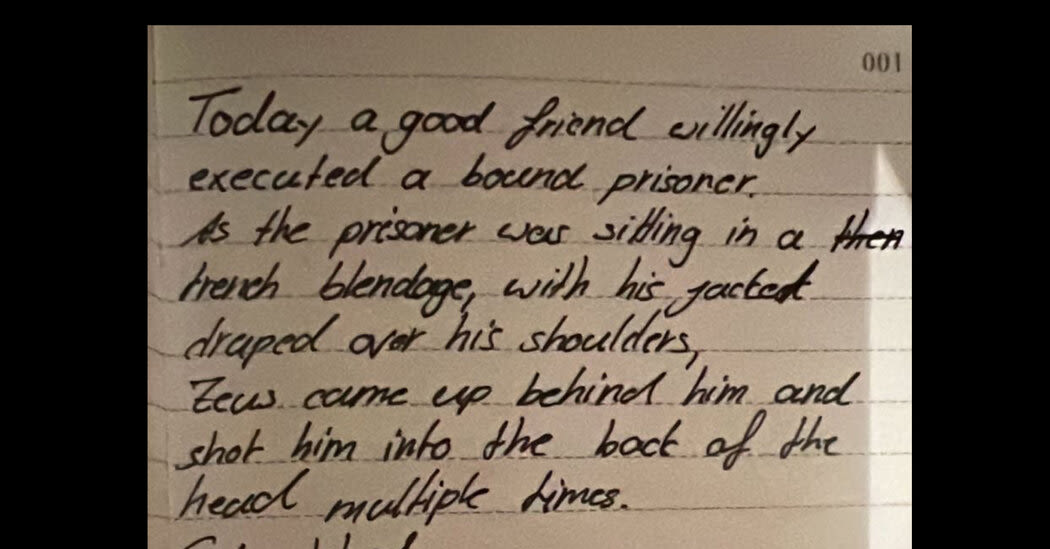 001
Today a good friend willingly
executed a bound prisoner.
As the prisoner was sitting in a then
trench blendage, with his jacket
draped over his shoulders,
Zeus came up behind him and
shot him into the back of the
head multiple times.